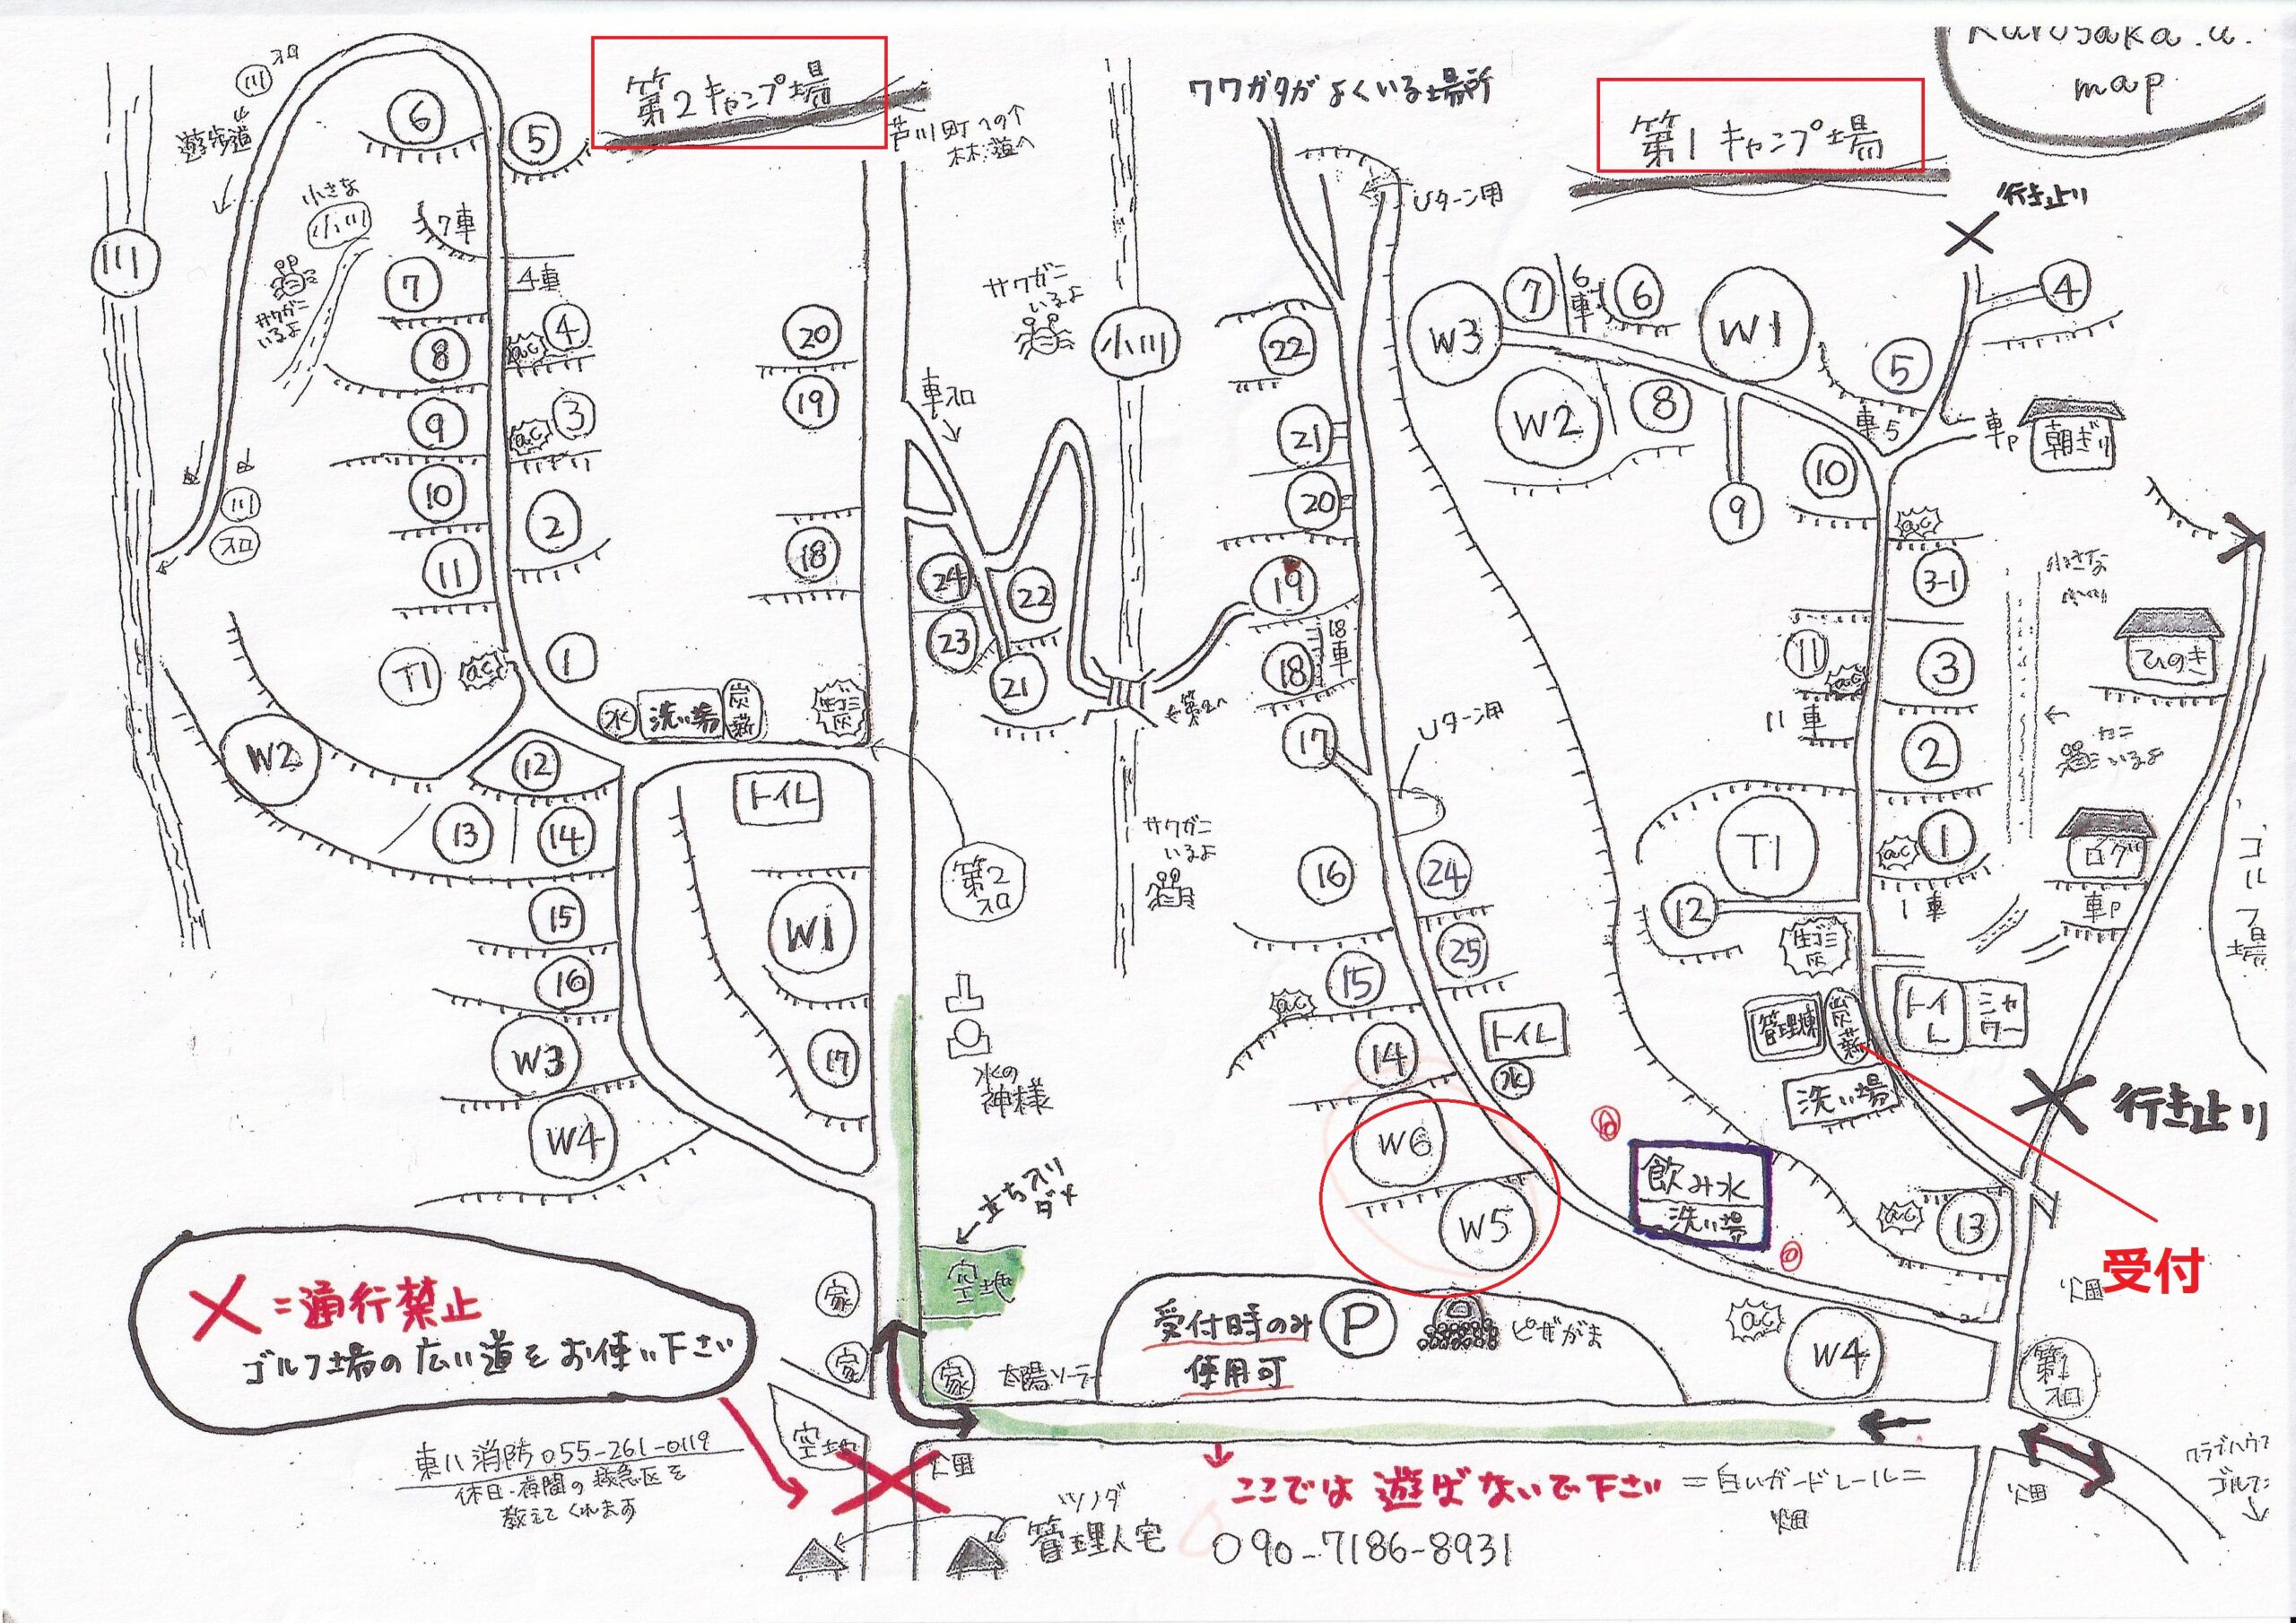 Kurosaka.a.
map
第2キャンプ場
第1キャンプ場
ワワガタがよくいる場所
芦川町への↑
林道へ
川
入口
遊歩道
6
5
小さな
小川
サワガニ
いるよ
7車
7
4車
ac
4
8
ac
3
9
10
2
11
川
入口
川
T1
ac
1
水
洗い場
炭
薪
生ゴミ
灰
W2
12
13
14
トイレ
15
16
W1
W3
17
W4
20
19
18
車入口
24
22
23
21
第2
入口
水の
神様
立ち入り
ダメ
空地
家
家
家
太陽ソーラー
空地
畑
サワガニ
いるよ
小川
←第2へ
サワガニ
いるよ
Uターン用
22
21
20
19
18
18車
17
Uターン用
16
24
25
15
ac
14
トイレ
水
W6
W5
飲み水
洗い場
行き止り
W3
7
6車
6
W1
4
5
W2
8
車5
車P
朝ぎり
9
10
ac
3-1
小さな
11
ac
11車
3
ひのき
2
カニ
いるよ
T1
ac
1
ログ
1車
車P
12
生ゴミ
灰
管理棟
炭
薪
トイレ
シャワー
洗い場
ゴルフ場
行き止り
ac
13
受付
畑
受付時のみ
使用可
P
ピザがま
ac
W4
第1
入口
×=通行禁止
ゴルフ場の広い道をお使い下さい
東八消防055-261-0119
休日・夜間の救急区を
教えてくれます
ツノダ
管理人宅
ここでは遊ばないで下さい
=白いガードレール=
畑
090-7186-8931
畑
クラブハウス